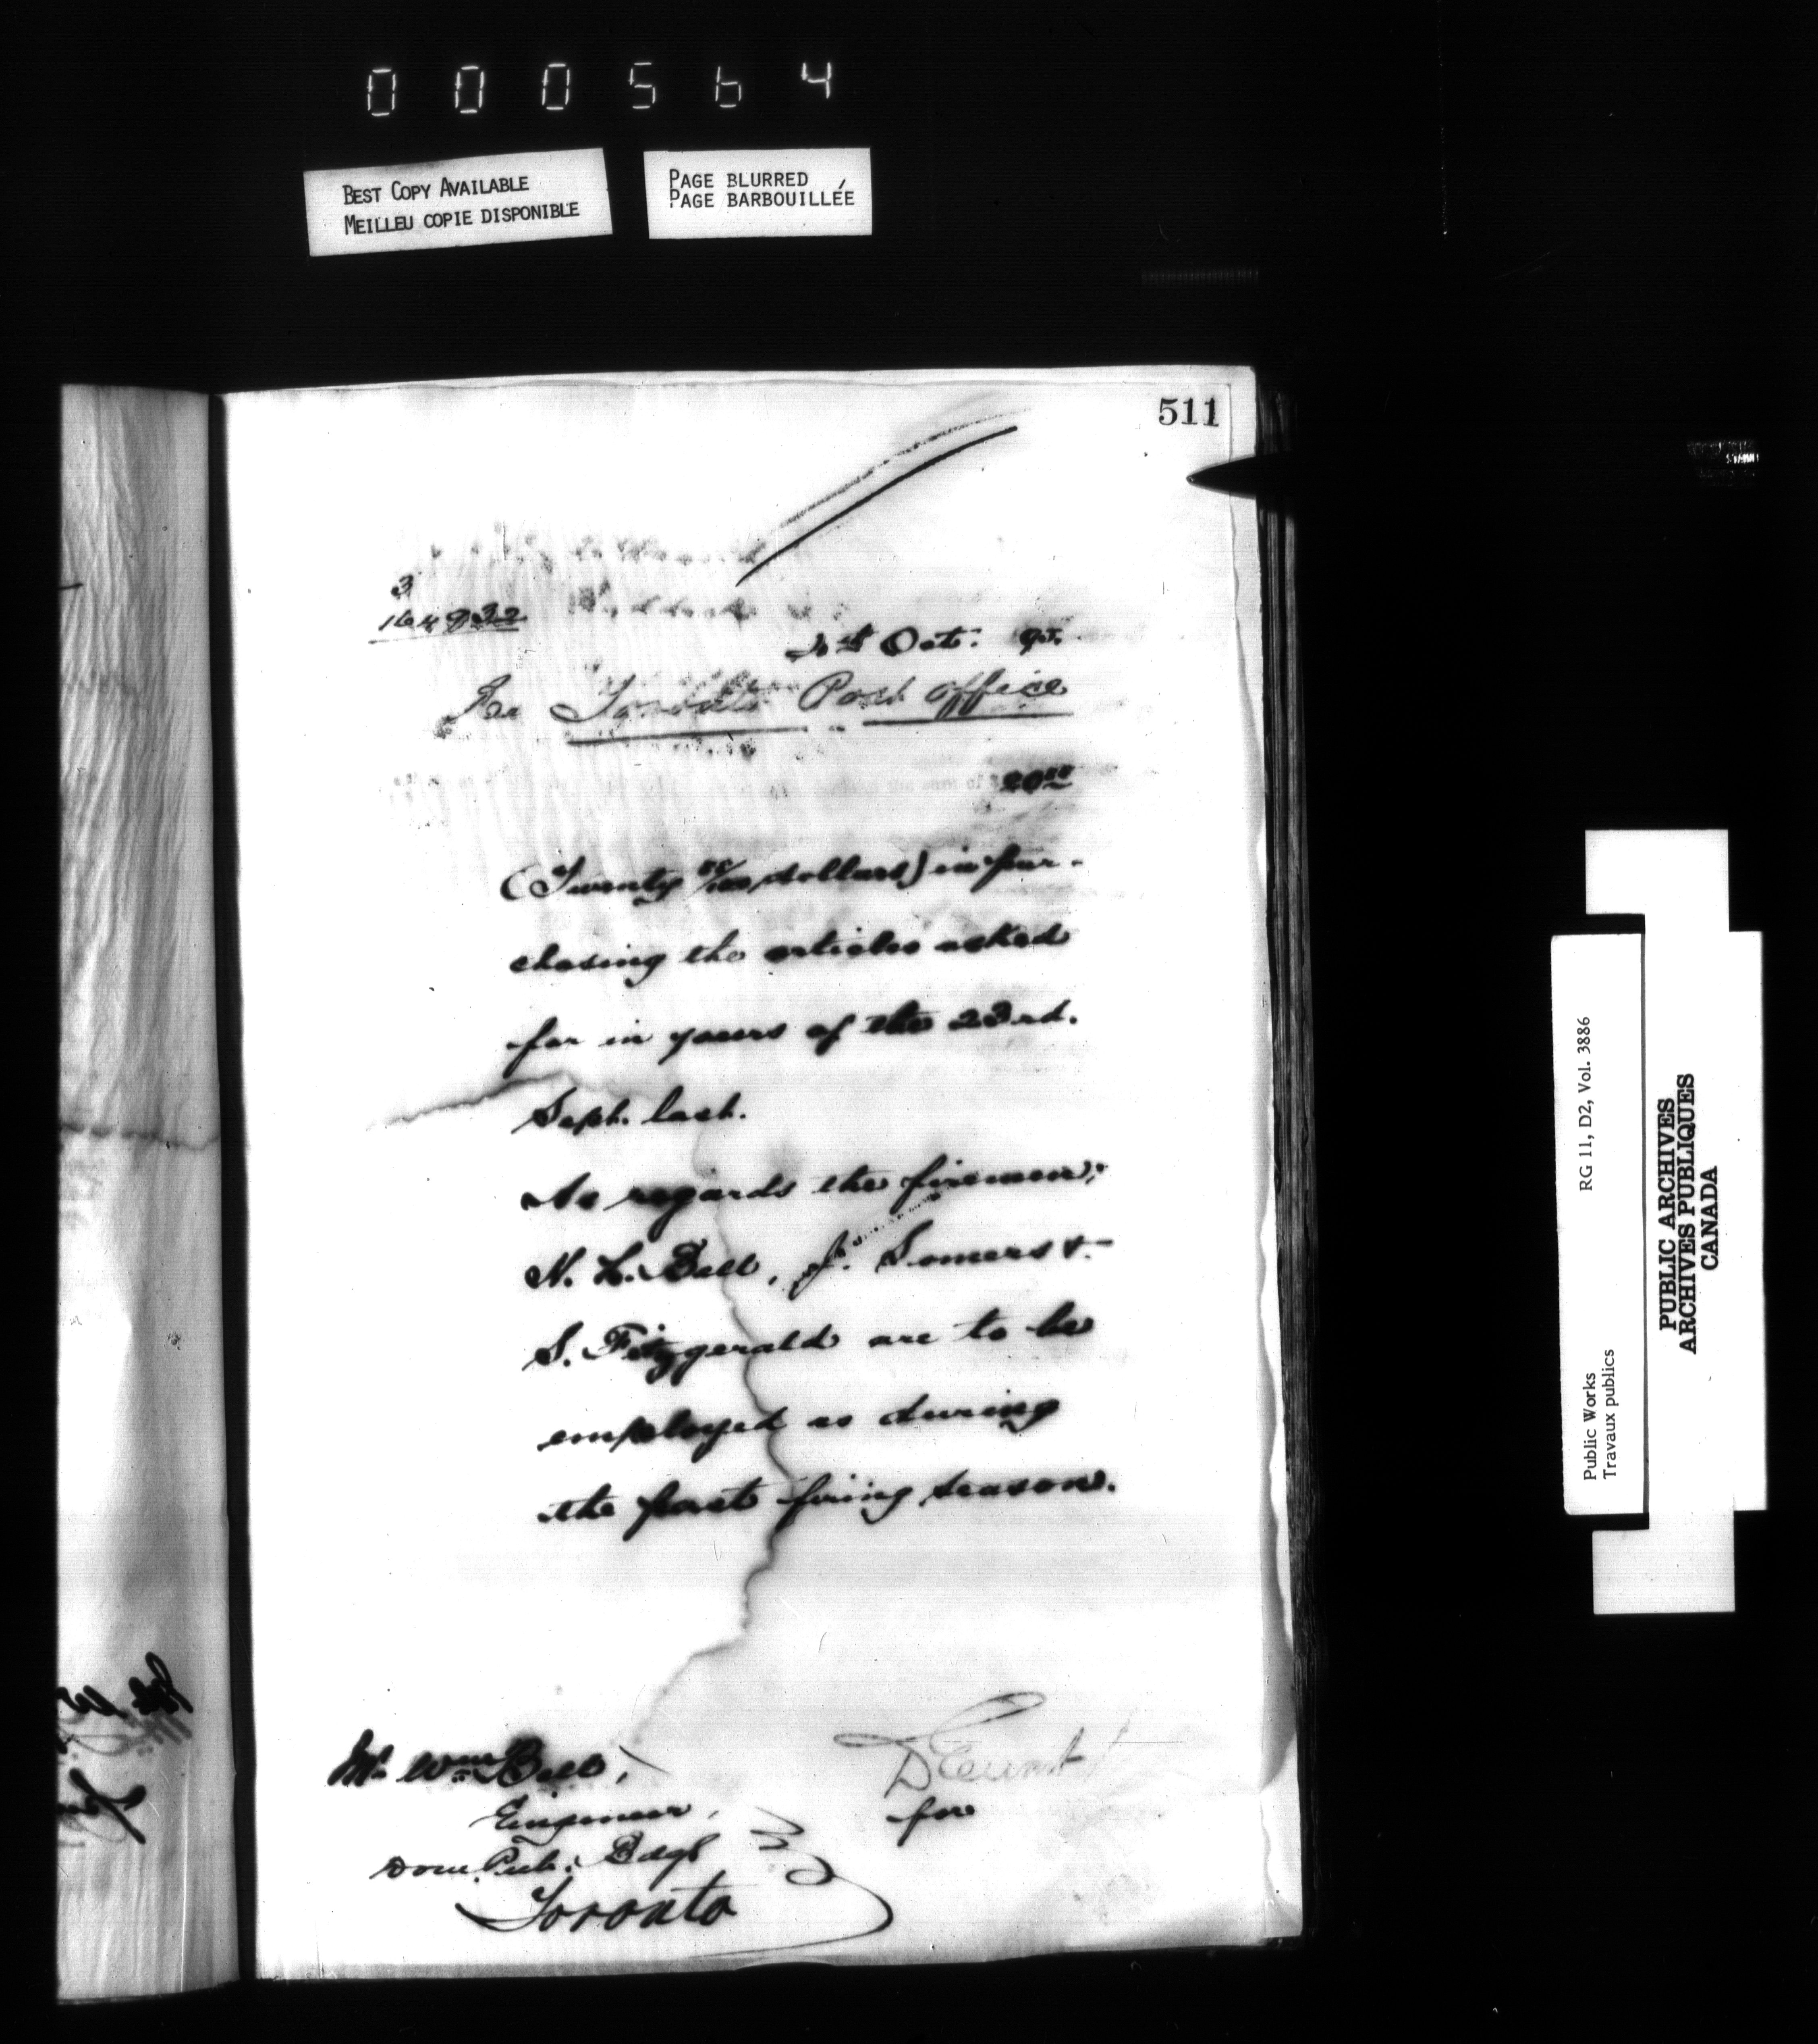 000564
BEST COPY AVAILABLE
MEILLEU COPIE DISPONIBLE
PAGE BLURRED
PAGE BARBOUILLÉE
511
3
164932
Oct. 95.
Re Toronto Post office
the sum of $20
(Twenty /100 dollars) in pur-
chasing the articles asked
for in yours of the 23rd.
Sept. last.
As regards the firemen;
N. L. Bell, J. Somers &
S. Fitzgerald are to be
employed as during
the past firing season.
Mr Wm Bell,
Engineer,
Dom. Pub. Bdgs
Toronto
D Ewart
for
RG 11, D2, Vol. 3886
Public Works
Travaux publics
PUBLIC ARCHIVES
ARCHIVES PUBLIQUES
CANADA